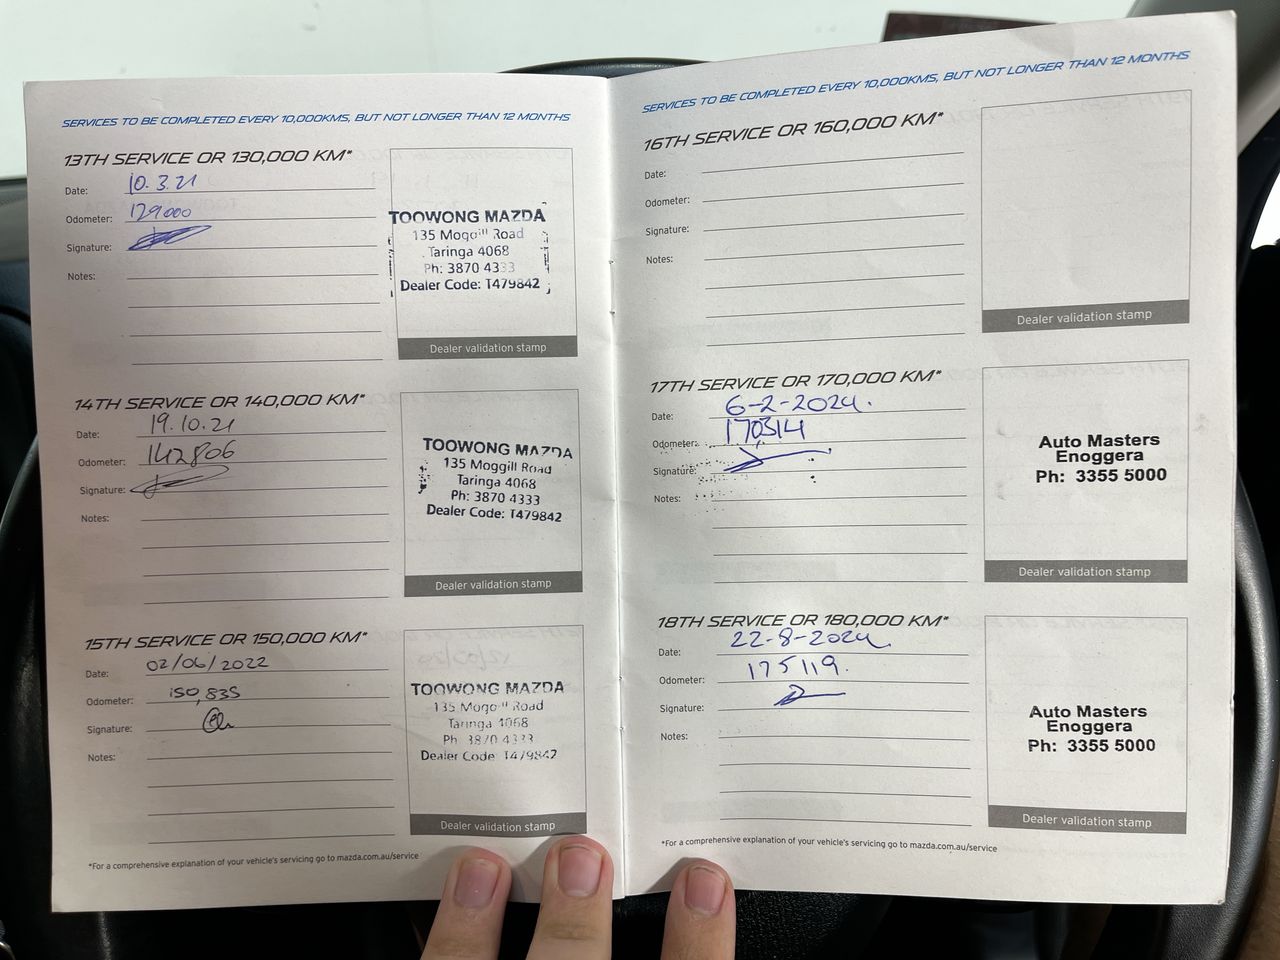 SERVICES TO BE COMPLETED EVERY 10,000KMS, BUT NOT LONGER THAN 12 MONTHS
13TH SERVICE OR 130,000 KM*
Date: 10.3.21
Odometer: 129000
Signature:
Notes:
TOOWONG MAZDA
135 Moggill Road
Taringa 4068
Ph: 3870 4333
Dealer Code: T479842
Dealer validation stamp
14TH SERVICE OR 140,000 KM*
Date: 19.10.21
Odometer: 142806
Signature:
Notes:
TOOWONG MAZDA
135 Moggill Road
Taringa 4068
Ph: 3870 4333
Dealer Code: T479842
Dealer validation stamp
15TH SERVICE OR 150,000 KM*
Date: 02/06/2022
Odometer: 150,835
Signature:
Notes:
TOOWONG MAZDA
135 Moggill Road
Taringa 4068
Ph: 3870 4333
Dealer Code: T479842
Dealer validation stamp
*For a comprehensive explanation of your vehicle's servicing go to mazda.com.au/service
SERVICES TO BE COMPLETED EVERY 10,000KMS, BUT NOT LONGER THAN 12 MONTHS
16TH SERVICE OR 160,000 KM*
Date:
Odometer:
Signature:
Notes:
Dealer validation stamp
17TH SERVICE OR 170,000 KM*
Date: 6-2-2024.
Odometer: 170314
Signature:
Notes:
Auto Masters
Enoggera
Ph: 3355 5000
Dealer validation stamp
18TH SERVICE OR 180,000 KM*
Date: 22-8-2024
Odometer: 175119.
Signature:
Notes:
Auto Masters
Enoggera
Ph: 3355 5000
Dealer validation stamp
*For a comprehensive explanation of your vehicle's servicing go to mazda.com.au/service